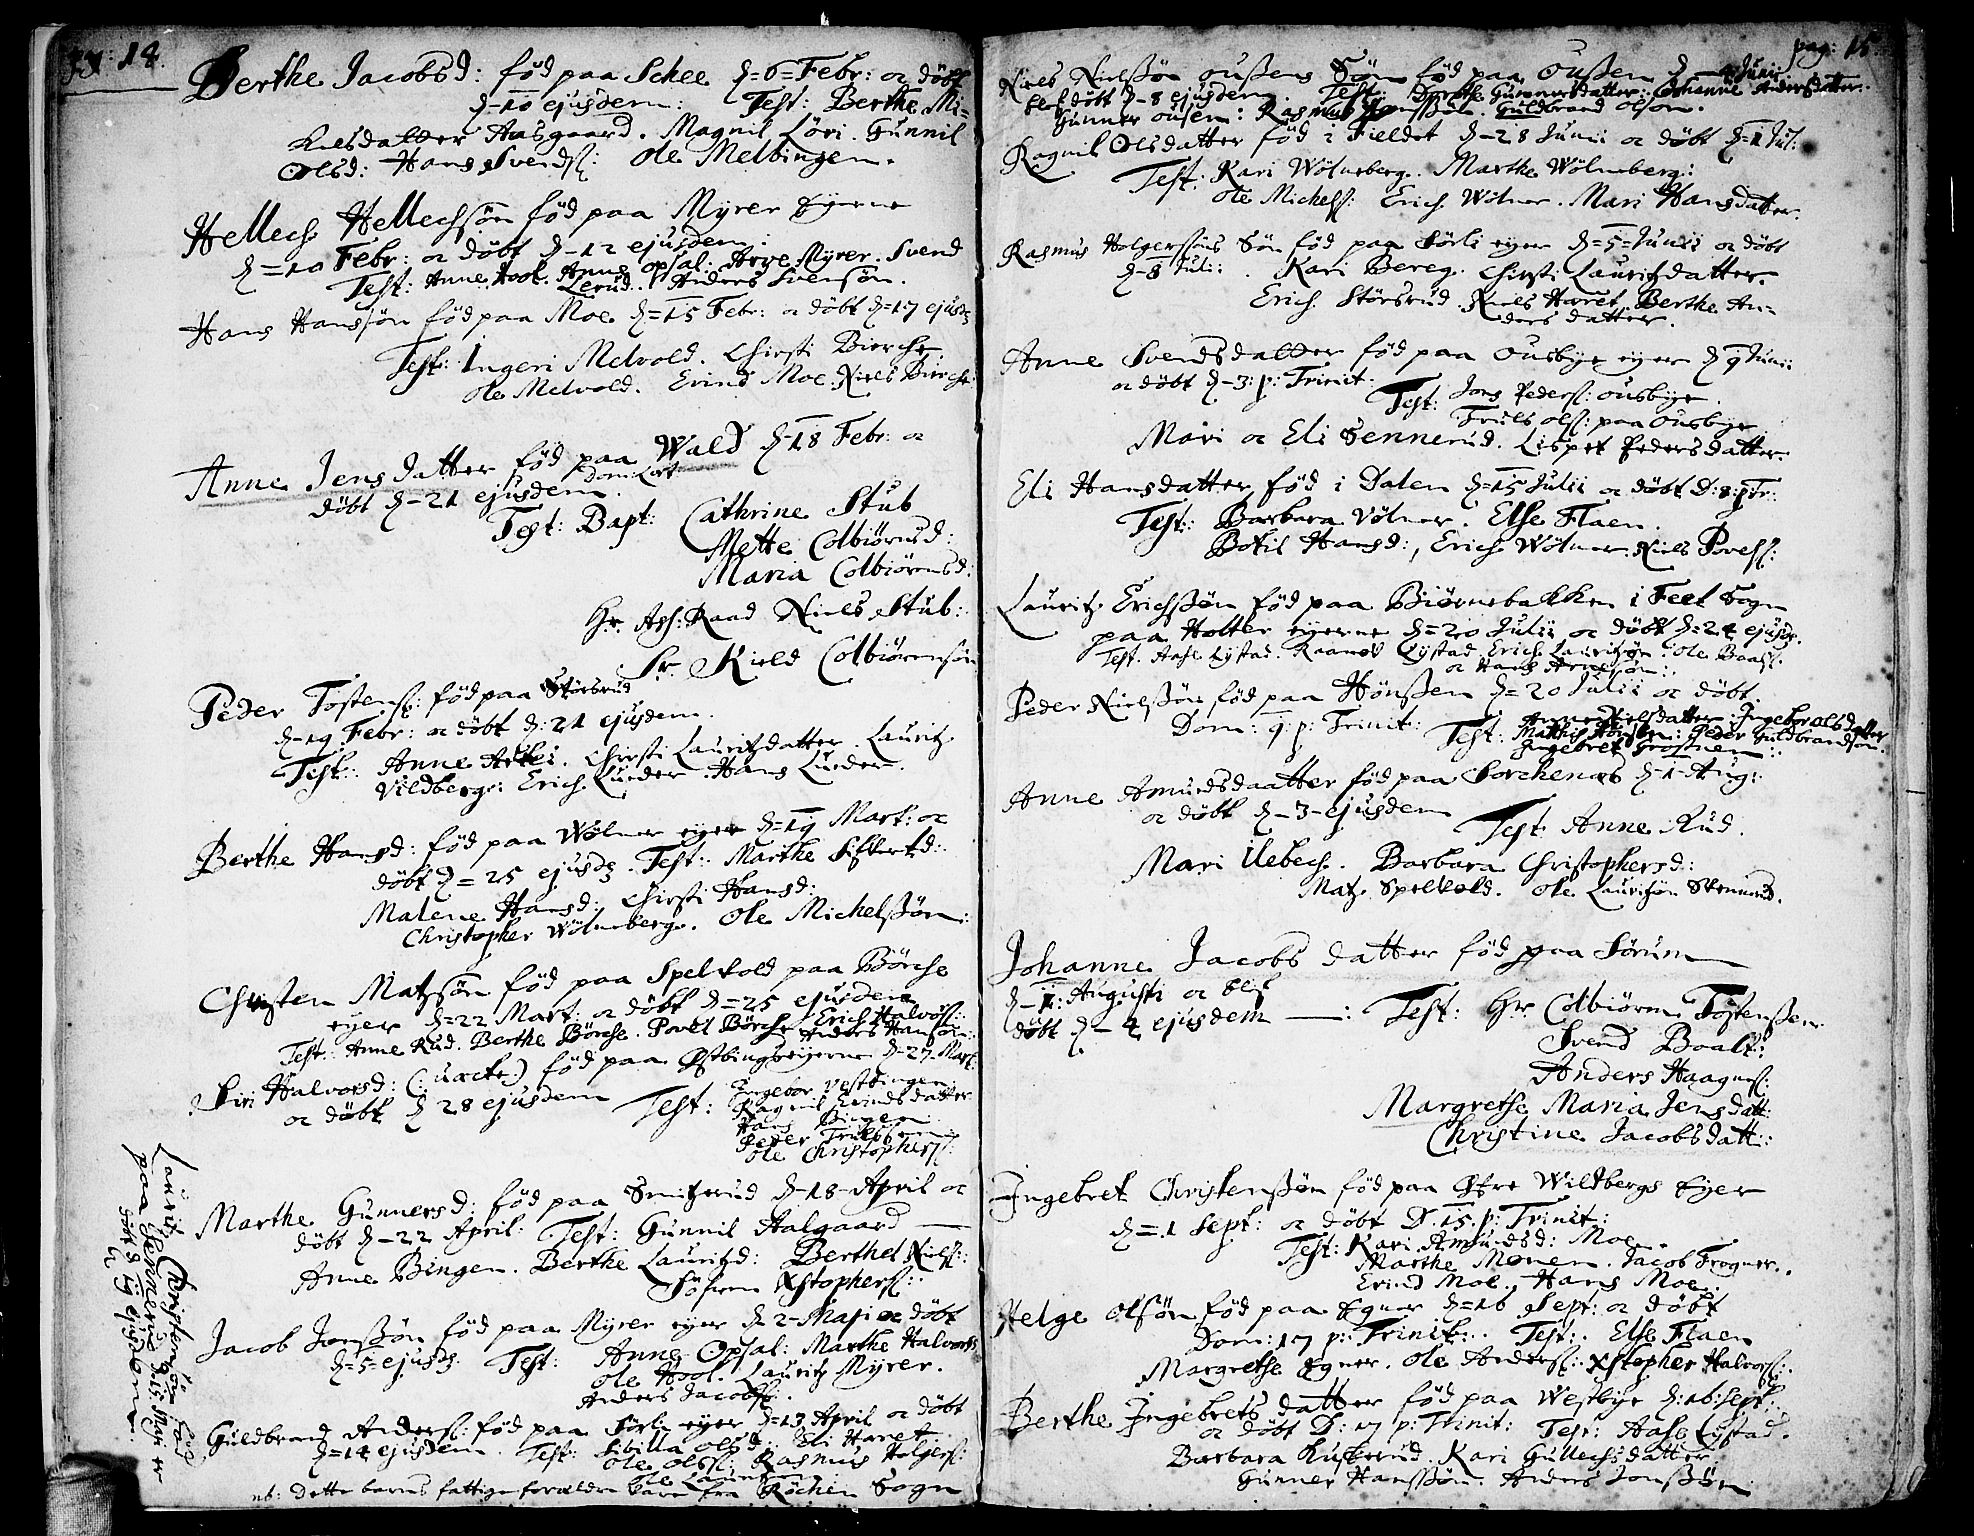 14.
Berthe Jacobsd: fød paa Schee d=6=Febr: oc døbt
d-10 ejusdem: Test: Berthe Mi-
kelsdatter Aasgaard. Magnil Löri. Gunnil
Olsd: Hans Svends: Ole Melbingen.
Hellech Hellechsøn fød paa Myrer Eyerne
d=10 Febr: oc døbt d-12 ejusdem:
Test: Anne Hool. Anne Opsal: Arve Myrer. Svend
Lerud. Anders Svensøn.
Hans Hanssøn fød paa Moe d=15 Febr: oc døbt d=17 ejusd
Test: Ingeri Melvold. Chirsti Bierche
Ole Melvold. Erind Moe. Niels Bierche
Anne Jensdatter fød paa Wald d-18 Febr: oc
døbt d-21 ejusdem.
Test: Bapt: Cathrine Stub
Mette Colbiörnsd:
Maria Colbiörnsd:
Hr. Ass: Raad Niels Stub:
Sr. Kield Colbiörnsøn
Peder Tostens: fød paa Störsrud
d-19 Febr: oc døbt d: 21 ejusdem.
Test: Anne . Chirsti Lauritzdatter. Lauritz
Vildberg: Erich Lunder. Hans Lunder.
Berthe Hansd: fød paa Wølner eyer d=19 Mart: oc
døbt d=25 ejusd. Test: Marthe Siffertd:
Malene Hansd: Chirsti Hansd:
Christopher Wølneberg. Ole Michelssøn:
Christen Matzsøn fød paa Spelvold paa Börche
eyer d=22 Mart: oc døbt d=25 ejusdem
Test: Anne Rud. Berthe Börche. Povel Börche. Erich Halvors:
Anders Hansøn:
Siri Halvorsd: (:uæcte:) fød paa Østbingseyerne d-27 Mart:
oc døbt d 28 ejusdem Test: Ingebor Vestbingen
Ragnil Erindsdatter
Hans Bingen
Peder Trulssøn
Ole Christophers:
Marthe Gunnersd: fød paa Smitzrud d-18-April oc
døbt d-22 April: Test: Gunnil Aalgaard
Anne Bingen. Berthe Lauritzd: Berthel Niels:
Söfren Xstophers:
Jacob Jonssøn fød paa Myrer eyer d 2-Maji oc døbt
d=5=ejusd. Test: Anne Opsal: Marthe Halvors
Ole Hool. Lauritz Myrer.
Anders Jacobs:
Guldbrand Anders: fød paa Sörli eyer d=13 April oc døbt
d=14 ejusdem. Test: Sibilla Olsd: Eli Haret
Ole Ols: Rasmus Holgers:
Ole Lauritzøn
nb: Dette barns fattige forældre vare fra Röchen Sogn
Lauritz Christensøn fød
paa Sennerud d. 15 Maji er
døbt d 19 ejusdem.
pag: 15
Niels Nielssøn Oussens Søn fød paa Oussen d-4 Junii
blef døbt d-8 ejusdem. Test: Dorethe Gunnersdatter: Johanne Andersdatter.
Gunner Ousen: Rasmus Hanssøn. Guldbrand Olsøn.
Ragnil Olsdatter fød i Fieldet d-28 Junii oc døbt d=1 Jul:
Test: Kari Wölneberg. Marthe Wölneberg:
Ole Michels: Erich Wölner. Mari Hansdatter.
Rasmus Holgerssøns Søn fød paa Sörli eyer d=5=Junii oc døbt
d-8 Julii. Kari Bereg. Chirsti Lauritzdatter.
Erich Störsrud. Niels Haret. Berthe An-
dersdatter.
Anne Svendsdatter fød paa Ousbye eyer d 9 Junii
oc døbt d-3: p: Trinit.
Test: Jens Peders: Ousbye.
Truls Ols: paa Ousbye
Mari oc Eli Sennerud. Lispet Pedersdatter.
Eli Hansdatter fød i Dalen d=15 Julii oc døbt D:8:p Tr:
Test: Barbara Völner. Else Flaen.
Botil Hansd:, Erich Wölner. Niels Povels:
Lauritz Erichssøn fød paa Biörnebakken i Feet Sogn
paa Holter eyerne d=20 Julii oc døbt d=24 ejusd.
Test. Aase Lystad. Raanøv Lystad. Erich Lauritzøn. Ole Baas:
oc Hans Arnesøn:
Peder Nielssøn fød paa Hönssen d=20 Julii oc døbt
Dom: 9: p: Trinit: Test: Anne Nielsdatter. Ingebor Olsdatter
Mathis Hönsen: Peder Guldbrandsøn.
Ingebret
Anne Amundsdaatter fød paa Torchenæs d-1-Aug:
oc døbt d-3-ejusdem
Test Anne Rud.
Mari Ilebech. Barbara Christophersd:
Matz Spelvold. Ole Lauritzøn Stennerud.
Johanne Jacobs datter fød paa Sörum
d-1: Augusti oc blef
døbt d-4 ejusdem —: Test: Hr Colbiörn Tostenssen
Svend Boals:
Anders Haagens:
Margrethe Maria Jensdatt:
Christine Jacobsdatt:
Ingebret Christenssøn fød paa Øfre Wildbergs Eyer
d=1 Sept: oc døbt D. 15. p: Trinit:
Test: Kari Amundsd: Moe.
Marthe Monen. Jacob Frogner.
Erind Moe. Hans Moe.
Helge Olsøn fød paa Egner d=16 Sept: oc døbt
Dom: 17 p: Trinit: Test: Else Flaen
Margrethe Egner. Ole Anders: Xstopher Halvors:
Berthe Ingebretsdatter fød paa Westbye d: 16: Sept:
oc døbt D: 17 p: Trinit: Test: Aase Lystad.
Barbara Kukerud. Kari Gullechsdatter
Gunner Hanssøn. Anders Jonssøn